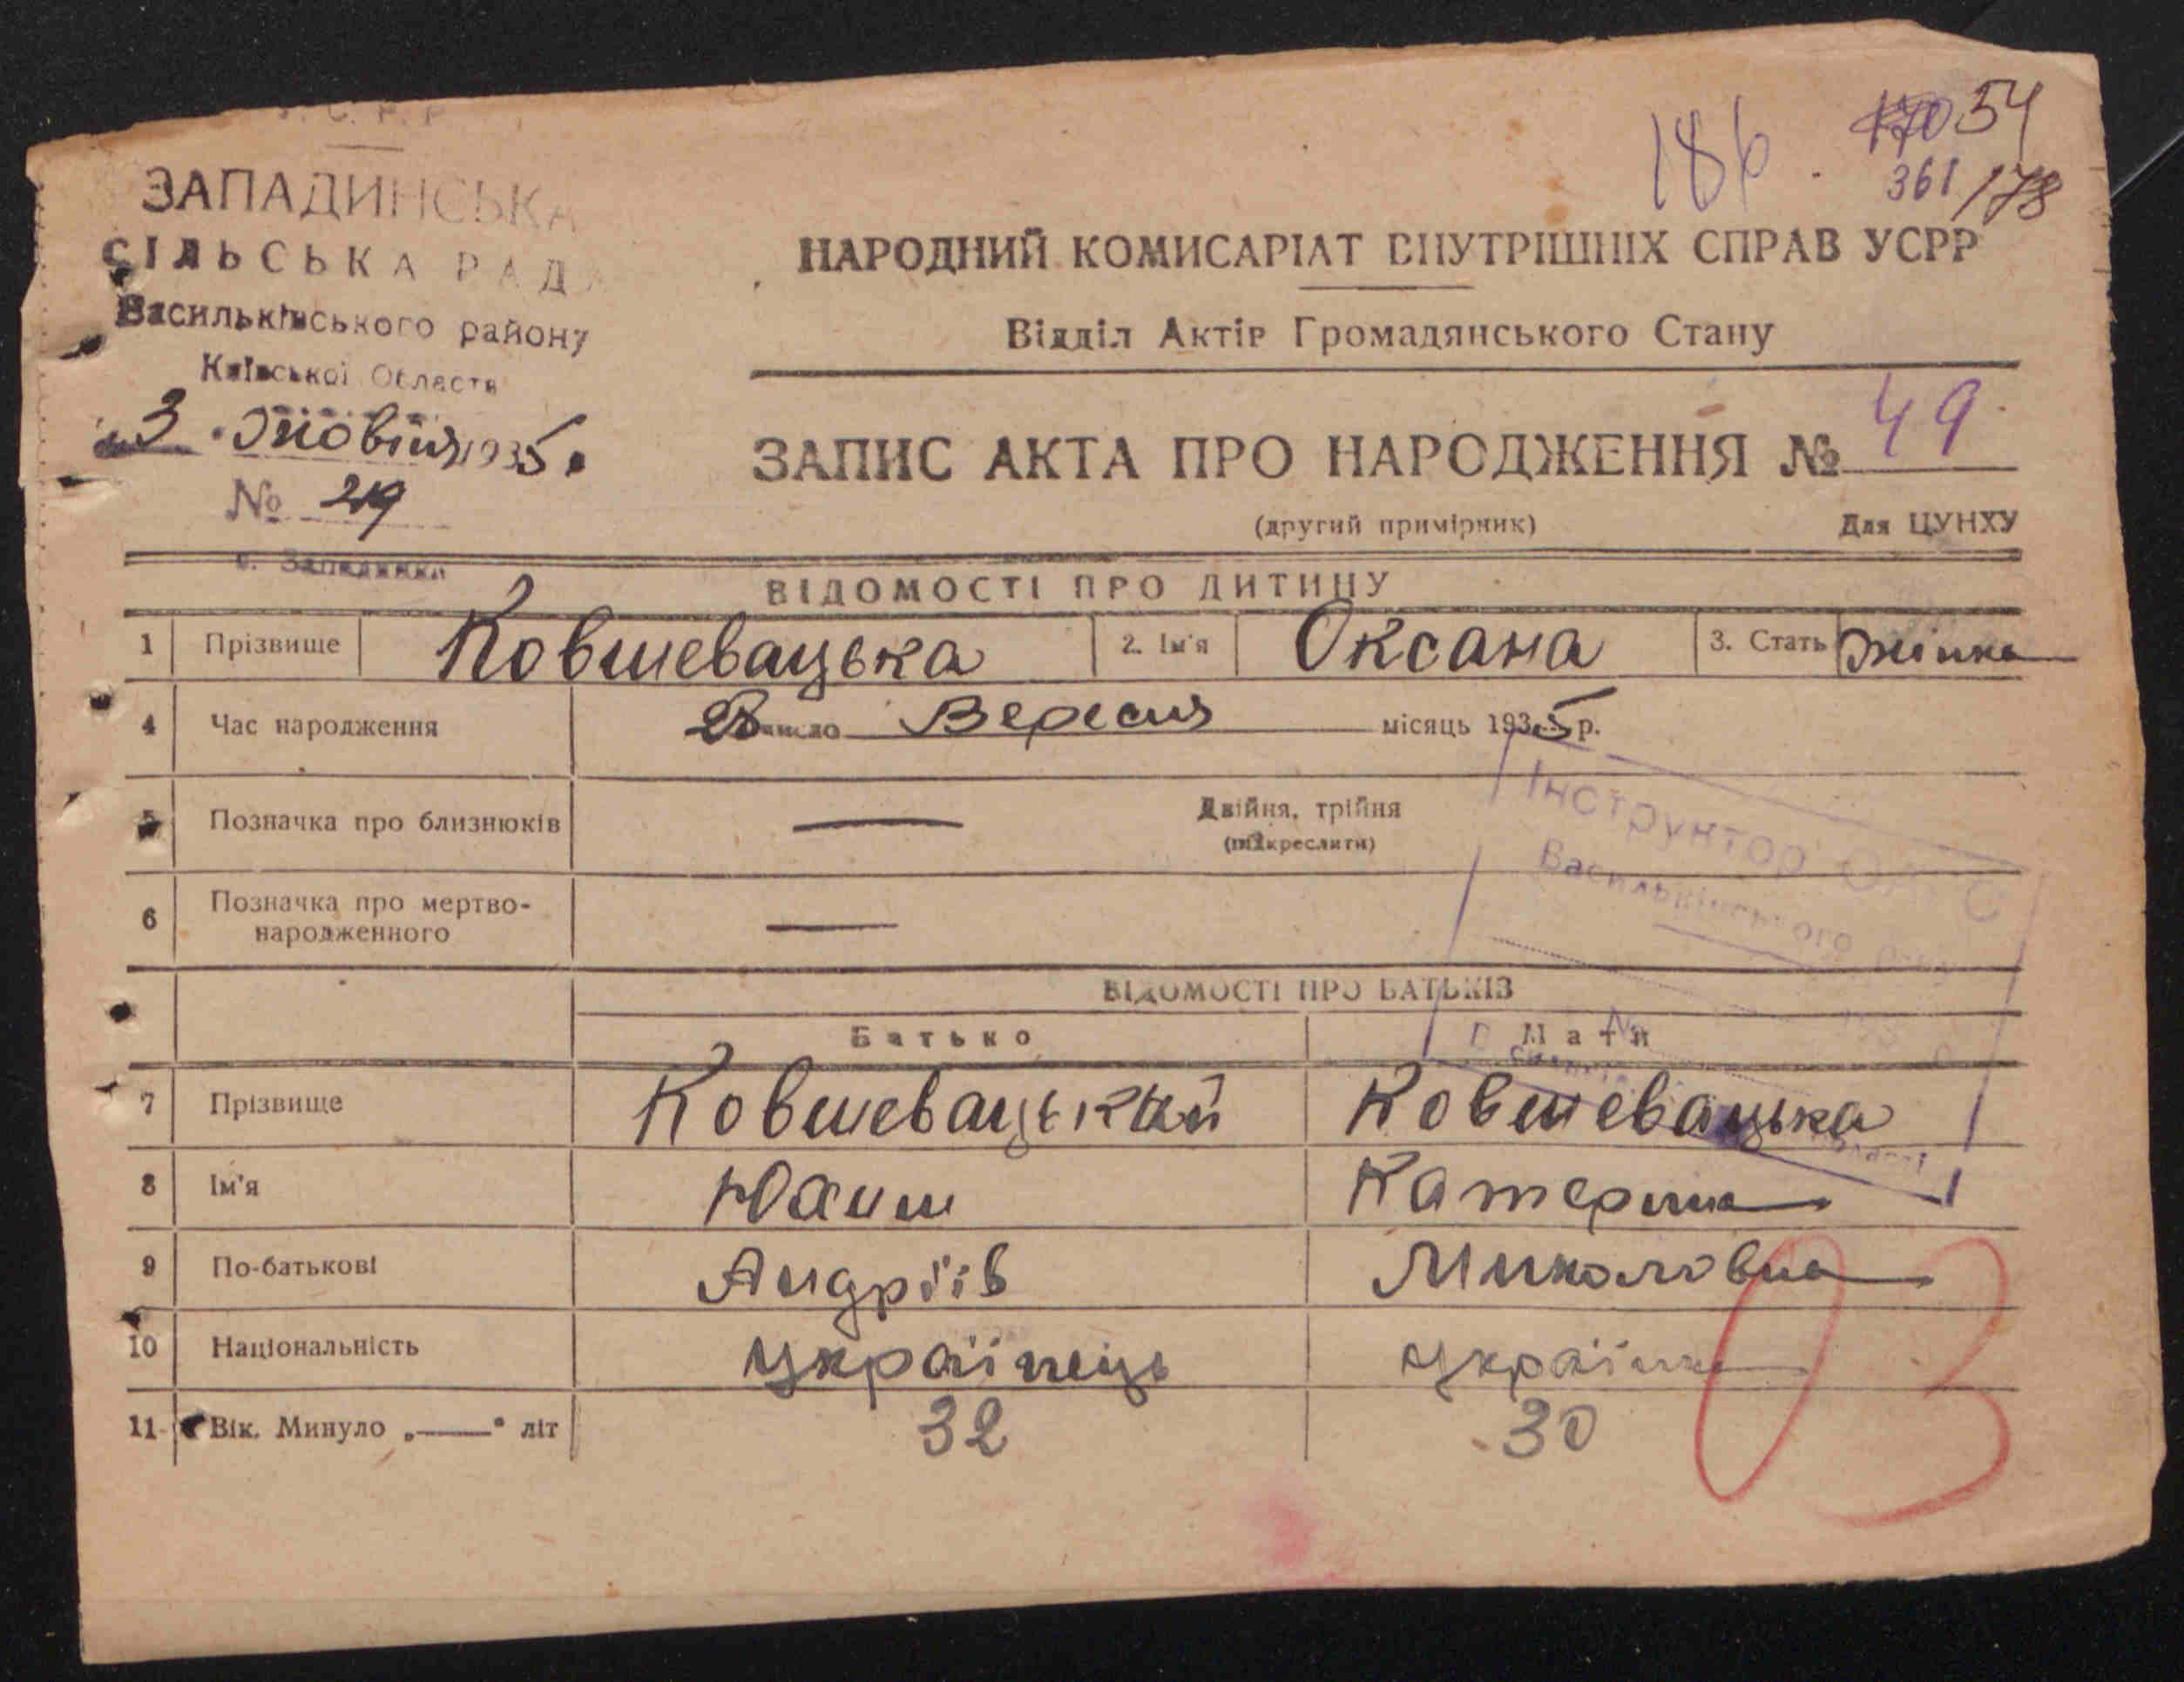 У. С. Р. Р
ЗАПАДИНСЬКА
СІЛЬСЬКА РАДА
Васильківського району
Київської Области
3 Жовтня 1935
№ 219
с. Западинка
186 170 54
361 178
НАРОДНИЙ КОМИСАРІАТ ВНУТРІШНІХ СПРАВ УСРР
Відділ Актів Громадянського Стану
ЗАПИС АКТА ПРО НАРОДЖЕННЯ № 49
(другий примірник) Для ЦУНХУ
ВІДОМОСТІ ПРО ДИТИНУ
1 Прізвище Ковшевацька 2. Ім'я Оксана 3. Стать Жінка
4 Час народження число Вересня місяць 1935 р.
5 Позначка про близнюків — Двійня, трійня
(підкреслити)
6 Позначка про мертво-
народженного —
Інструктор ОАГС
Васильківського
ВІДОМОСТІ ПРО БАТЬКІВ
Батько Мати
7 Прізвище Ковшевацький Ковшевацька
8 Ім'я Юхим Катерина
9 По-батькові Андріїв Миколовна
10 Національність українець українка
11 Вік. Минуло „——" літ 32 30
03